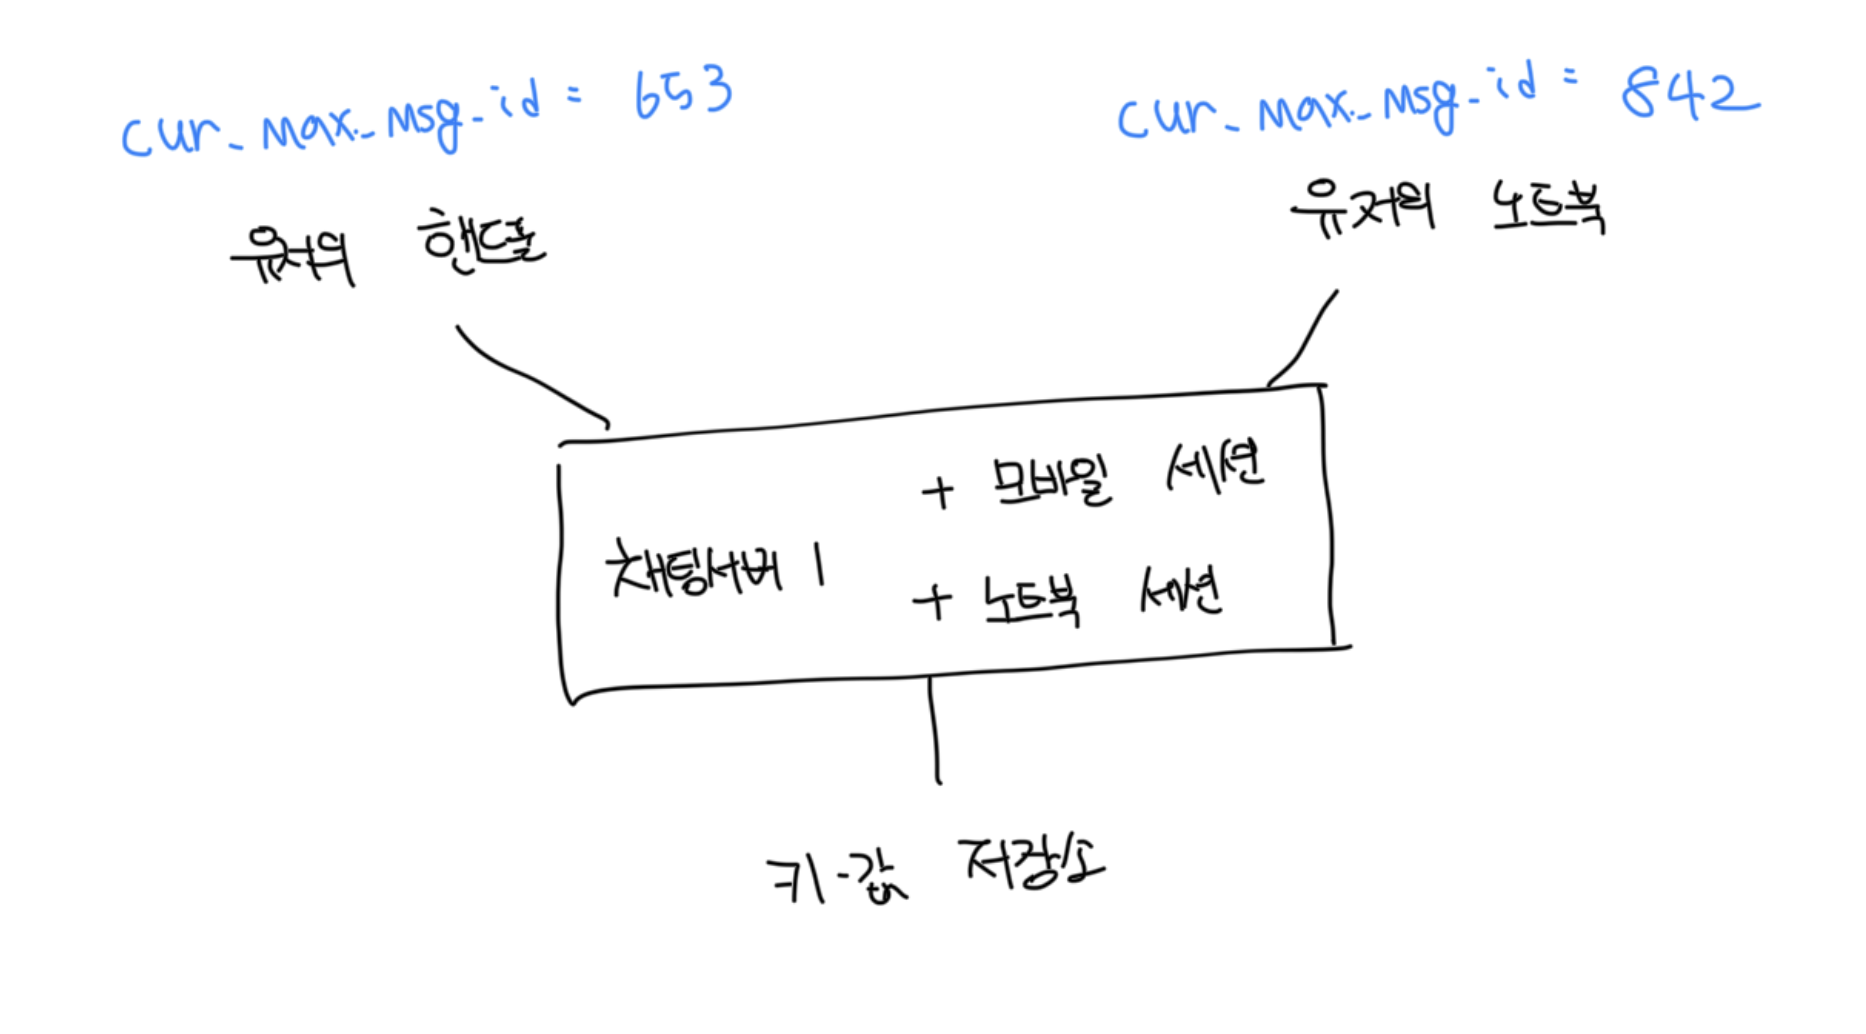 cur_max_msg_id = 653
cur_max_msg_id = 842
유저의 핸드폰
유저의 노트북
채팅서버 1
+ 모바일 세션
+ 노트북 세션
키-값 저장소